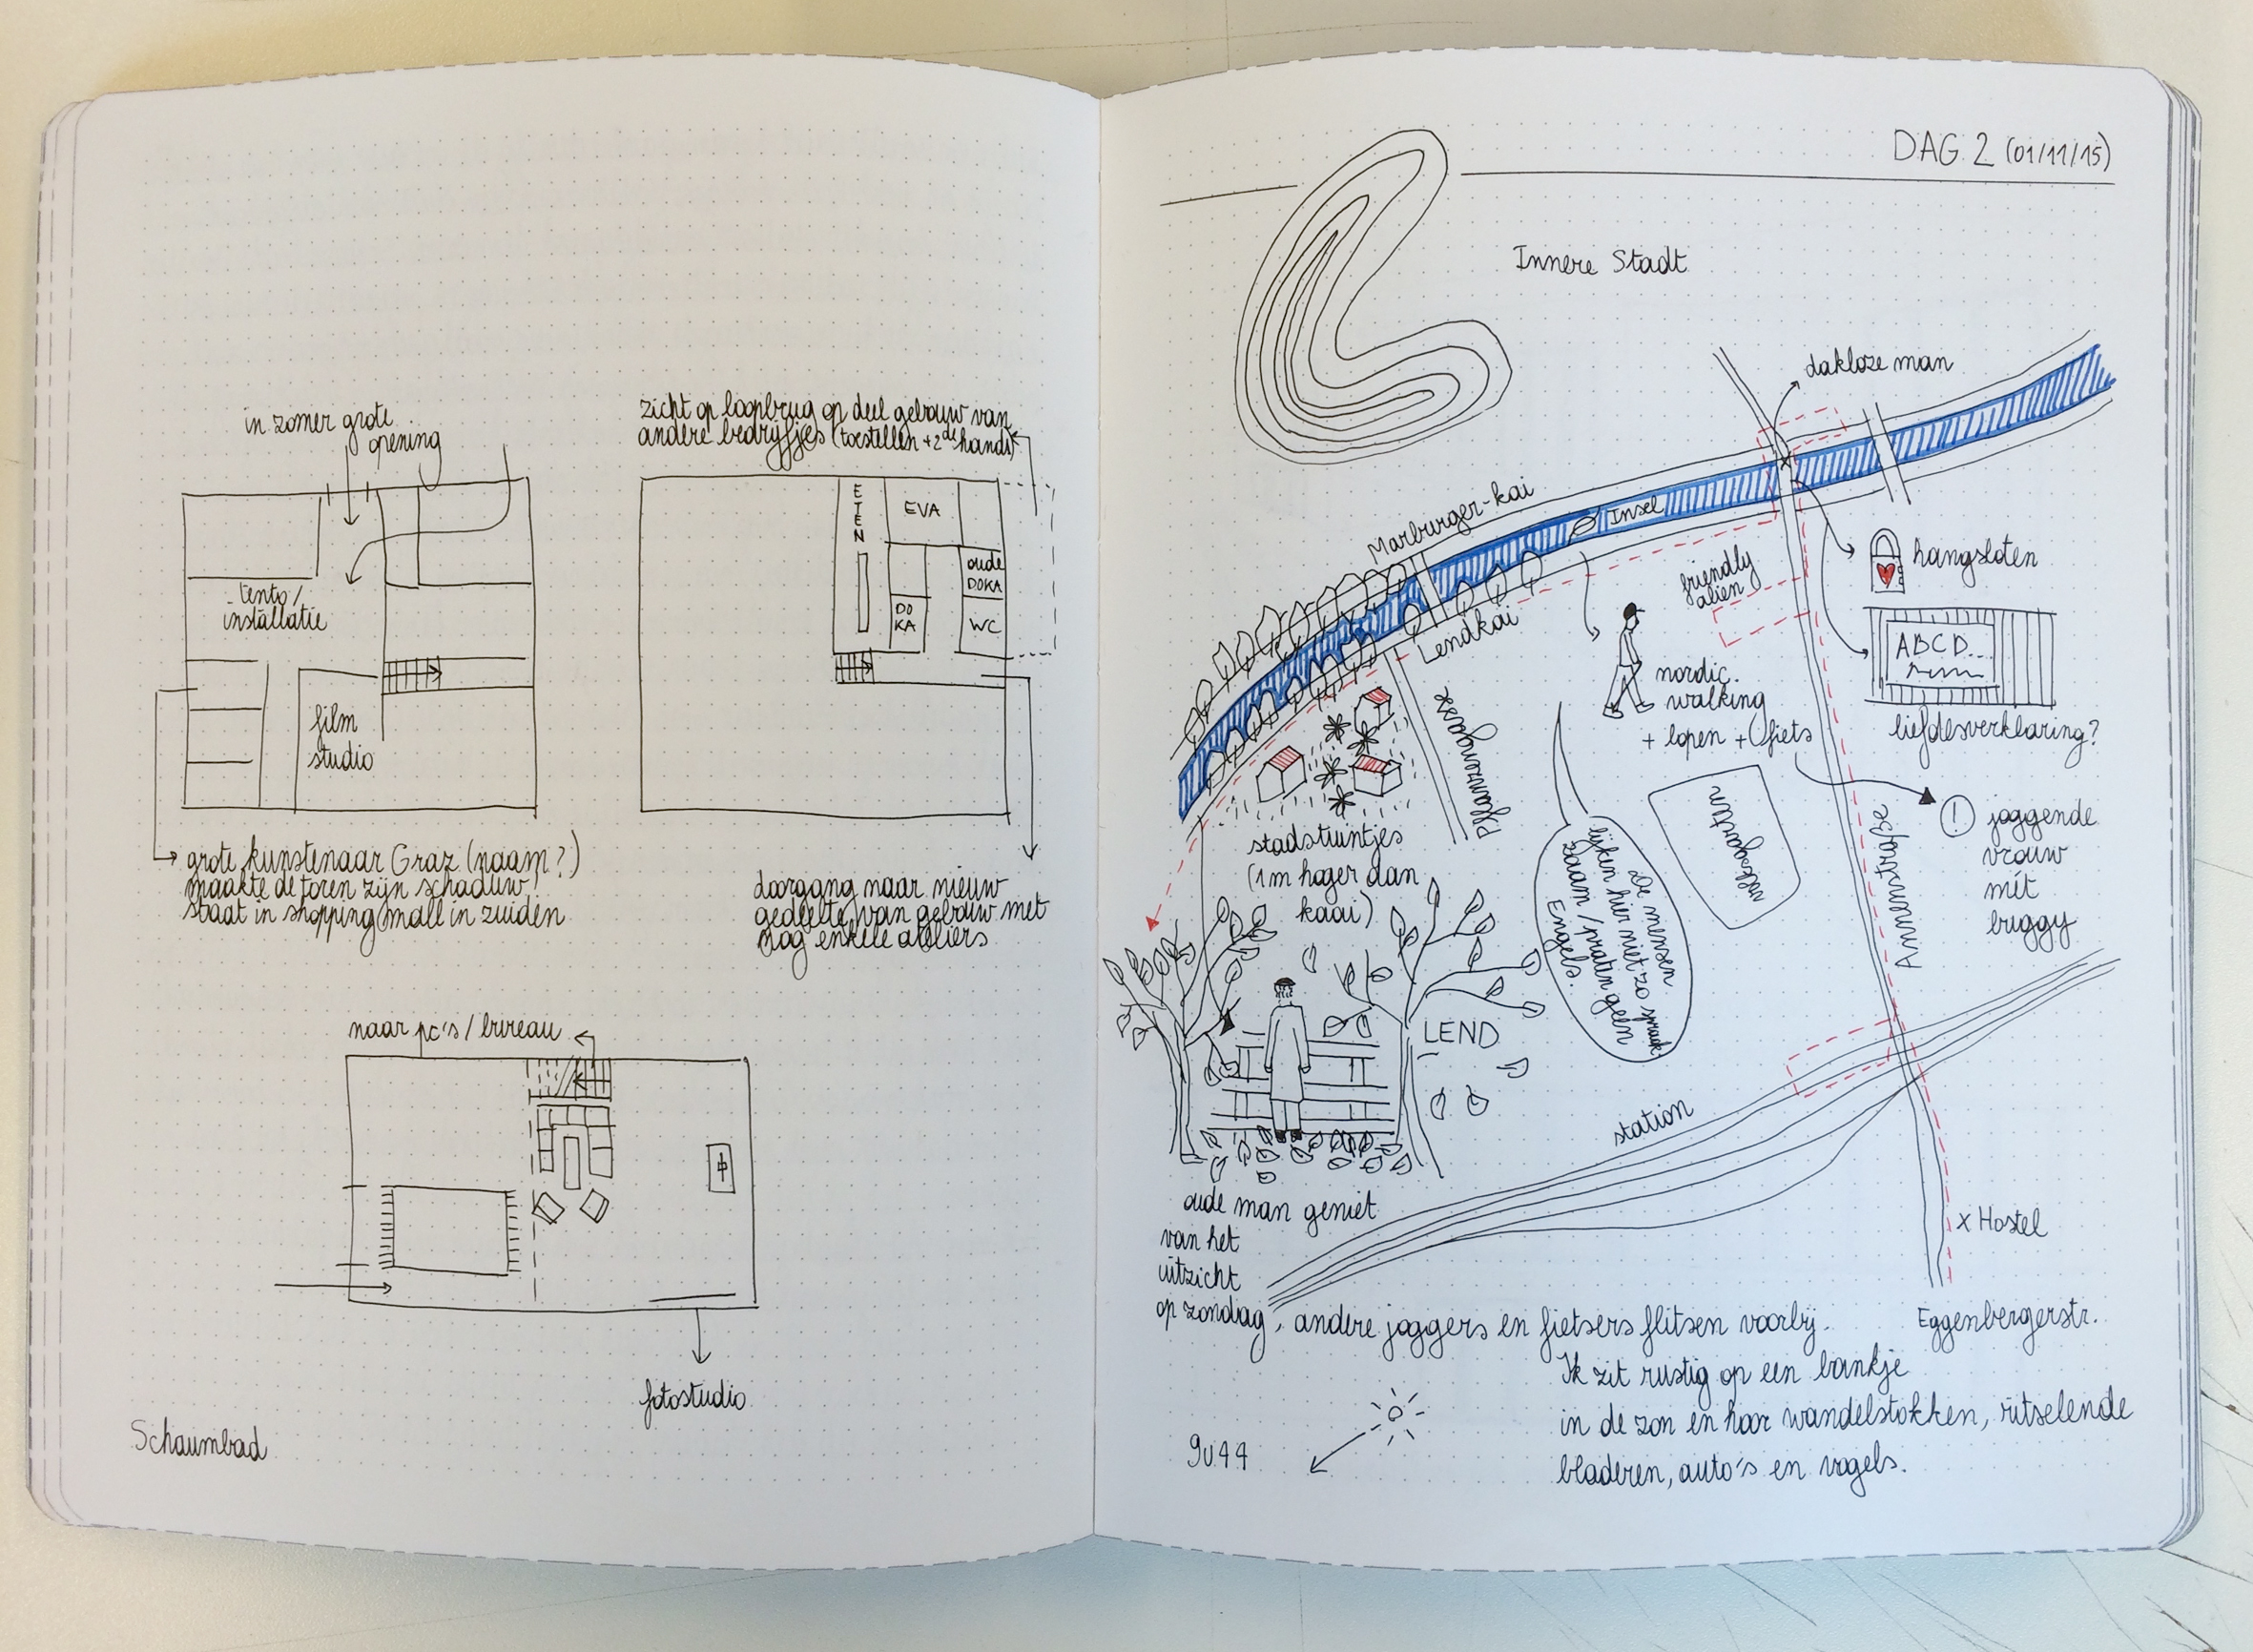 in zomer grote
opening
tento/
installatie
film
studio
grote kunstenaar Graz (naam?)
maakte de toren zijn schaduw!
staat in shopping mall in zuiden
zicht op loopbrug op deel gebouw van
andere bedrijfjes (toestellen + 2de hands)
ETEN
EVA
oude
DOKA
DO
KA
WC
doorgang naar nieuw
gedeelte van gebouw met
nog enkele ateliers
naar pc's / bureau
fotostudio
Schaumbad
DAG 2 (01/11/15)
Innere Stadt
dakloze man
Marburger-kai
Insel
Lendkai
friendly
alien
hangsloten
ABCD...
liefdesverklaring?
nordic
walking
+ lopen + fiets
! joggende
vrouw
mét
buggy
Pflanzengasse
stadstuintjes
(1m hoger dan
kaai)
De mensen
lijken hier niet zo spraak
zaam / praten geen
Engels.
volksgarten
Annenstraße
LEND
station
x Hostel
oude man geniet
van het
uitzicht
op zondag, andere joggers en fietsers flitsen voorbij.
Eggenbergerstr.
Ik zit rustig op een bankje
in de zon en hoor wandelstokken, ritselende
bladeren, auto's en vogels.
9u44